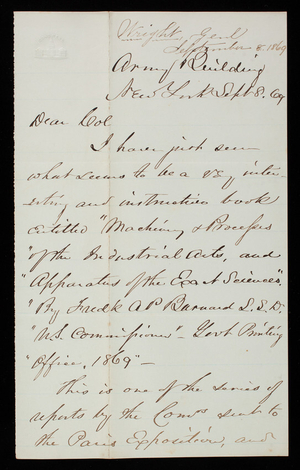 Wright, Genl
September 8. 1869
Army Building
New York Sept 8. 69
Dear Col
I have just seen
what seems to be a very inter-
esting and instructive book
entitled "Machinery & Processes
"of the Industrial Arts, and
"Apparatus of the Exact Sciences",
"By Fredk A P Barnard L.L.D.
"U.S. Commissioner" – Govt Printing
"Office, 1869" –
This is one of the series of
reports by the Comrs sent to
the Paris Exposition, and